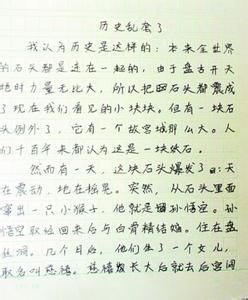 历史乱套了
我认为历史是这样的：本来全世界
的石头都是连在一起的，由于盘古开天
地时力量无比大，所以把石头都震成
了现在我们看见的小块块。但有一块石
头例外了，它有一个故宫城那么大。人
们千百年来都认为这是一块妖石。
然而有一天，这块石头爆发了：天
在震动，地在摇晃。突然，从石头里面
窜出一只小猴子，他就是孙悟空。孙
悟空取经回来后与白骨精结婚。住在盘
丝洞。几个月后，他们生了一个女儿，
取名叫慈禧。慈禧长大后就去后宫闹